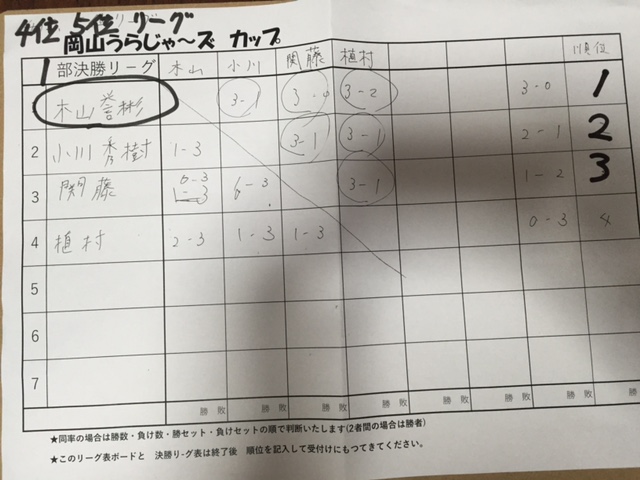 4位 5位 リーグ
岡山うらじゃ〜ズ カップ
1 部決勝リーグ 木山 小川 関藤 植村 順位
木山 誉彬 3-1 3-0 3-2 3-0 1
2 小川 秀樹 1-3 3-1 3-1 2-1 2
3 関藤 0-3 1-3 3-1 1-2 3
4 植村 2-3 1-3 1-3 0-3 4
5
6
7
勝 敗 勝 敗 勝 敗 勝 敗 勝 敗 勝 敗 勝 敗
★同率の場合は勝数・負け数・勝セット・負けセットの順で判断いたします(2者間の場合は勝者)
★このリーグ表ボードと 決勝リーグ表は終了後 順位を記入して受付けにもつてきてください。